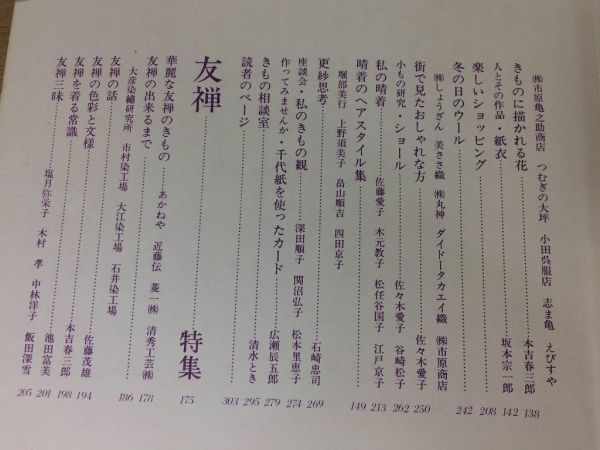 ㈱市原亀之助商店 つむぎの大坪 小田呉服店 志ま亀 えびすや
きものに描かれる花 本吉春三郎 138
人とその作品・紙衣 坂本宗一郎 142
楽しいショッピング 208
冬の日のウール 242
㈱しょうざん 美ささ織 ㈱丸神 ダイドータカエイ織 ㈱市原商店
街で見たおしゃれな方 佐々木愛子 250
小もの研究・ショール 佐々木愛子 谷崎松子 262
私の晴着 佐藤愛子 木元教子 松任谷国子 江戸京子 213
晴着のヘアスタイル集 149
堀部美行 上野須美子 畠山順吉 四田京子
更紗思考 石崎忠司 269
座談会・私のきもの観 深田順子 関沼弘子 松本里恵子 274
作ってみませんか・千代紙を使ったカード 広瀬辰五郎 279
きもの相談室 清水とき 295
読者のページ 303
友禅 特集 175
華麗な友禅のきもの あかねや 近藤伝 菱一㈱ 清秀工芸㈱ 178
友禅の出来るまで 186
大彦染繡研究所 市村染工場 大江染工場 石井染工場
友禅の話 佐藤茂雄 194
友禅の色彩と文様 本吉春三郎 198
友禅を着る常識 池田富美 201
友禅三昧 塩月弥栄子 木村孝 中林洋子 飯田深雪 205